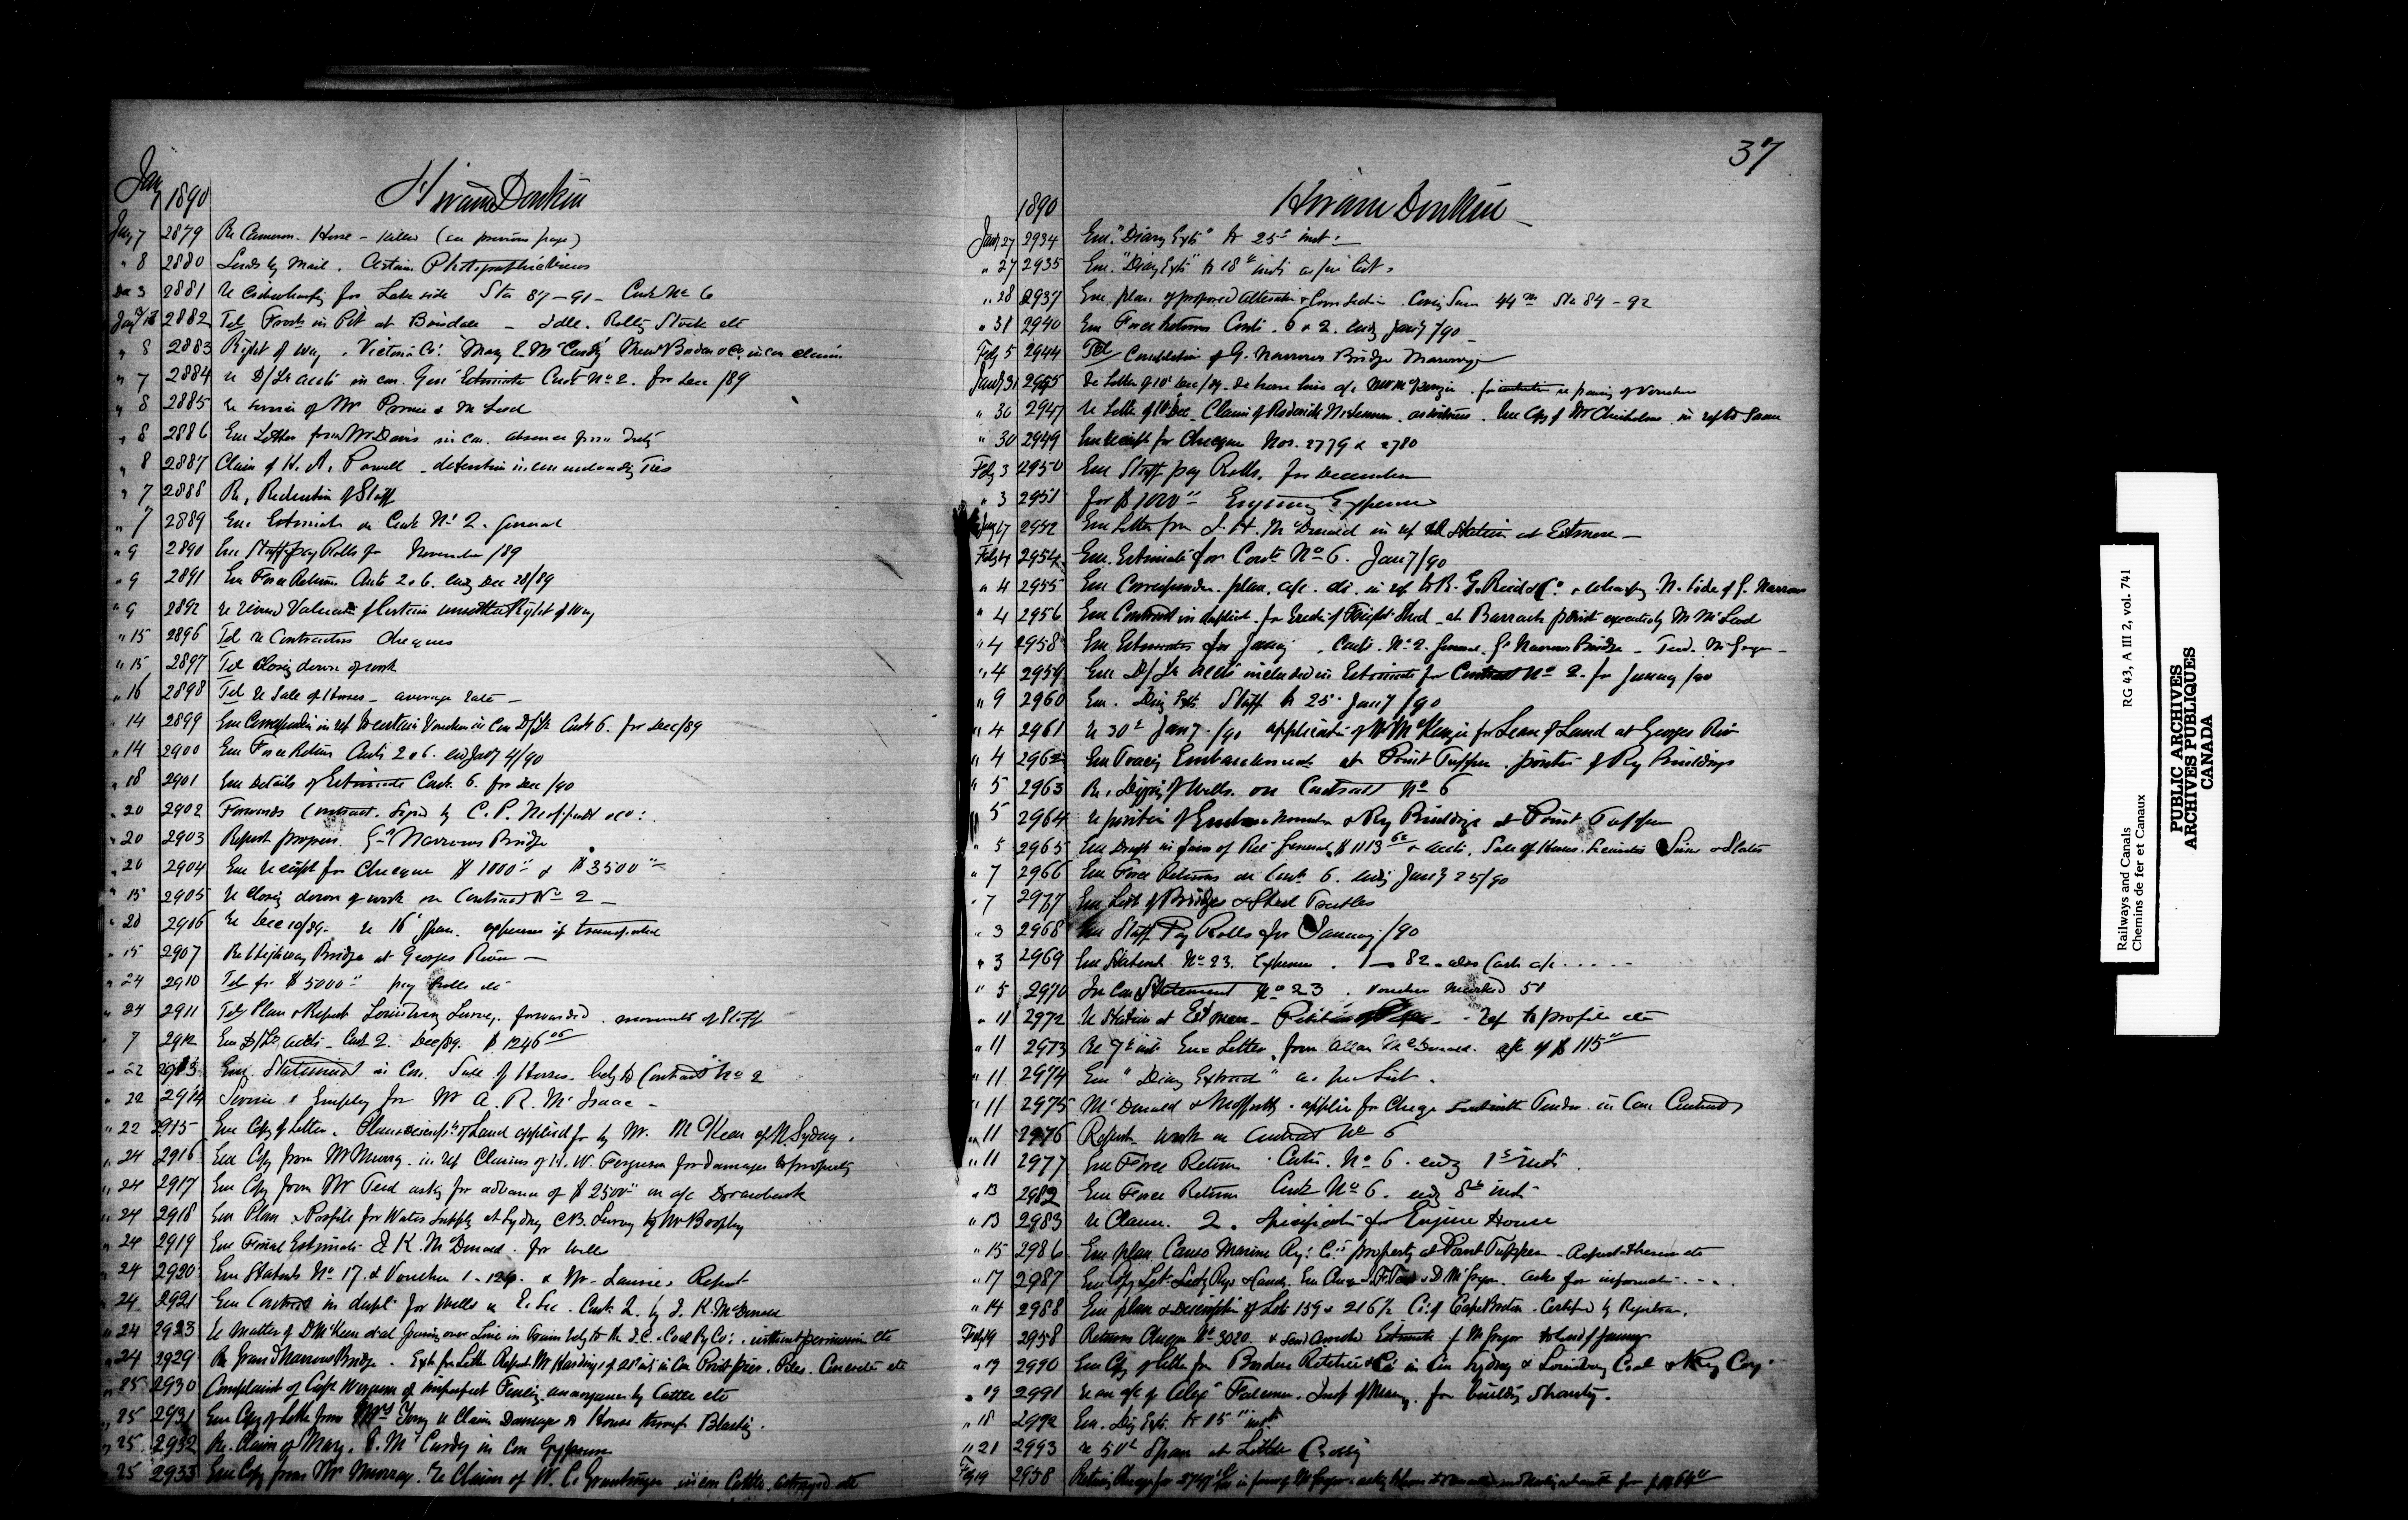 Jany 1890 Hiram Donkin
Jany 7 2879 Re Cameron. Horse - killed (see previous page)
" 8 2880 Sends by Mail. Certain Photographic views
Dec 3 2881 Re for Lake side Sta 87-91- Cont No 6
2882 Tel Frost in Pit at Boisdale - Idle. Rolling Stock etc
" 8 2883 Right of way. Victoria Co: Mary E McCurdy claim
" 7 2884 Re D/Lr accts in con. Gen' Estimate Cont No 2. for Dec /89
" 8 2885 Re service of Mr & McLeod
" 8 2886 Enc Letter from Mr Davis in con. absence from Duty
" 8 2887 Claim of H. A. Powell - detention in con unloading Ties
" 7 2888 Re, Reduction of Staff
" 7 2889 Enc Estimate on Cont No 2. General
" 9 2890 Enc Staff pay Rolls for November /89
" 9 2891 Enc Force Return Conts 2 & 6. endg Dec 28/89
" 9 2892 Re revised Valuation of Certain Right of Way
" 15 2896 Tel Re Contractors Cheques
" 15 2897 Tel Closing down of work
" 16 2898 Tel Re Sale of Horses - average rate -
" 14 2899 Enc Correspondence in ref to certain Vouchers in Con D/Lr Cont 6. for Dec/89
" 14 2900 Enc Force Return Conts 2 & 6. end Jany 4/90
" 18 2901 Enc Details of Estimate Cont. 6. for Dec /90
" 20 2902 Forwards Contract. Signed by C. P.
" 20 2903 Report progress. Gd Narrows Bridge
" 20 2904 Enc Receipt for Cheques $1000 & $3500
" 15 2905 Re Closing down of work on Contract No 2 -
" 20 2906 Re Dec 10/89- Re 16' Span.
" 15 2907 Re Highway Bridge at Georges River -
" 24 2910 Tel for $5000 pay Rolls etc
" 24 2911 Tel Plan & Report Louisburg Survey. forwarded. movements of Staff
" 7 2912 Enc D/Lr accts - Cont 2. Dec/89. $1246
" 22 2913 Enc Statement in Con. Sale of Horses. belg to Contract No 2
" 22 2914 Service & Employ for Mr A. R. McIsaac -
" 22 2915 Enc Copy of Letter. Plan & descripn of Land applied for by Mr. McKean of N. Sydney.
" 24 2916 Enc Copy from Mr Murray. in ref Claims of H. W. Ferguson for damages to property
" 24 2917 Enc Copy from Mr Teed asking for advance of $2500 on a/c Drawback
" 24 2918 Enc Plan & Profile for Water Supply at Sydney C.B. Survey by Mr
" 24 2919 Enc Final Estimate J. K. McDonald. for Well
" 24 2920 Enc Statmts No 17. & Voucher 1-124. & Mr Lauries Report
" 24 2921 Enc Contract in dupl: for Wells on E. Sec. Cont. 2. by J. K. McDonald
" 24 2923 Re Matter of D McKeen without permission etc
" 24 2929 Re Grand Narrows Bridge. Concrete etc
" 25 2930 Complaint of Capt of imperfect Fencing. annoyance by Cattle etc
" 25 2931 Enc Copy of Letter from Mrs re Claim Damage to House through Blasting.
" 25 2932 Re. Claim of Mary. E. McCurdy in Con
" 25 2933 Enc Copy from Mr Murray. Re Claim of W. C. in con Cattle destroyed etc
37
1890 Hiram Donkin
Jany 27 2934 Enc. "Diary Exts" to 25 inst:
" 27 2935 Enc. "Diary Exts" to 18 inst as per list.
" 28 2937 Enc plan. of proposed alteration 44 m Sta 84-92
" 31 2940 Enc Force Returns Conts. 6 & 2. endg Jany /90
Feby 5 2944 Tel Completion of G. Narrows Bridge Masonry
Jany 31 2945 Re Letter of 10 Dec/89. passing of Voucher
" 30 2947 Re Letter of 10 Dec Claim of Roderick McLennan. as witness. Enc Copy of Mr Chisholms in ref to Same
" 30 2949 Enc receipt for Cheques Nos. 2779 & 2780
Feby 3 2950 Enc Staff pay Rolls. for December
" 3 2951 for $1020 Engineering Expenses
Jany 27 2952 Enc Letter from J. H. McDonald in ref to Station at Estmere -
Feby 4 2954 Enc. Estimate for Conts No 6. Jany/90
" 4 2955 Enc Correspondence. plan. a/c. etc. in ref to R. G. Reid & Co. N. Side of G. Narrows
" 4 2956 Enc Contract in duplicate. for Erectn of Freight Shed - at Barrach point executed by M McLeod
" 4 2958 Enc Estimates for January. Conts. No 2. General. Gd Narrows Bridge - Teed. McGregor -
" 4 2959 Enc D/Lr accts included in Estimate for Contract No 2. for January /90
" 9 2960 Enc. Diary Exts Staff to 25. Jany /90
" 4 2961 Re 30 Jany. /90 application of Mr McKenzie for Lease of Land at Georges Riv
" 4 2962 Enc Tracing Embankment at Point Tupper. position of Ry Buildings
" 5 2963 Re. Digging of Wells. on Contract No 6
" 5 2964 Re position of Embankment & Ry Buildings at Point Tupper
" 5 2965 Enc Draft in favor of Rec General $1113 & accts. Sale of Horses.
" 7 2966 Enc Force Returns on Cont. 6. endg Jany 25/90
" 7 2937 Enc List of Bridges & Steel Trestles
" 3 2968 Enc Staff Pay Rolls for January/90
" 3 2969 Enc Statemt. No 23. Expense. 1-82. also Cash a/c . . . .
" 5 2970 In Con Statement No 23. Voucher marked 51
" 11 2972 Re Station at Estmere - Ref to profile etc
" 11 2973 Re 7 inst Enc Letter. from Allan McDonald. a/c of $115
" 11 2974 Enc "Diary Extract" as per List.
" 11 2975 McDonald & Moffatts. applies for Cheqe Tender. in Con Contract
" 11 2976 Report work on Contract No 6
" 11 2977 Enc Force Return. Conts. No 6. endg 1st inst.
" 13 2982 Enc Force Return Cont No 6. endg 8th inst
" 13 2983 Re Clause. 2. Specification for Engine House
" 15 2986 Enc plan. Canso Marine Ry: Co:s property at Point Tupper - Report thereon etc
" 17 2987 Enc Copy Let. McGregor. asks for information . . .
" 14 2988 Enc plan & Description of Lots 159 & 216½ Co: of Cape Breton. Certified by Registrar.
Feby 19 2958 Returns Cheque No 3020. & send amended Estimate of McGregor to end of January
" 19 2990 Enc Copy of Letter from Borden Ritchie & Co in Con Sydney & Louisburg Coal & Ry Coy.
" 19 2991 Re an a/c of Alexr. for building Shanty.
" 18 2992 Enc. Diy Exts. to 15 inst
" 21 2993 Re 50 Span at Little
Feby 19 2958 Returns Cheque for
Railways and Canals RG 43, A III 2, vol. 741
Chemins de fer et Canaux
PUBLIC ARCHIVES
ARCHIVES PUBLIQUES
CANADA